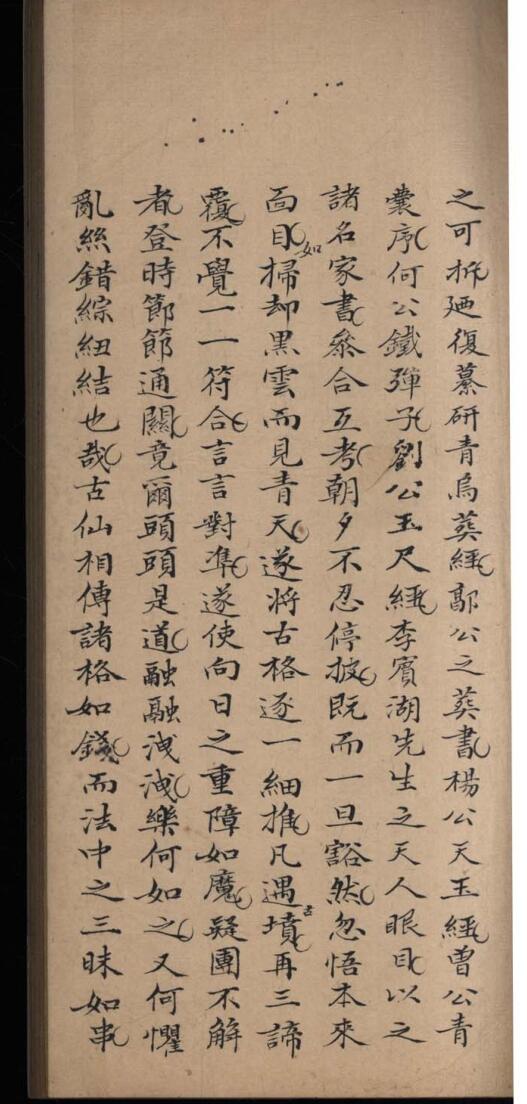 之可拆廼復纂研青烏葬經郭公之葬書楊公天玉經曾公青
囊序何公鐵彈子劉公玉尺經李賓湖先生之天人眼目以之
諸名家書叅合互考朝夕不忍停披既而一旦豁然忽悟本來
面目如掃却黒雲而見青天遂將古格逐一細推凡遇古墳再三諦
覆不覺一一符合言言對準遂使向日之重障如魔疑團不解
者登時節節通關竟爾頭頭是道融融洩洩樂何如之又何懼
亂絲錯綜紐結也哉古仙相傳諸格如錢而法中之三昧如串